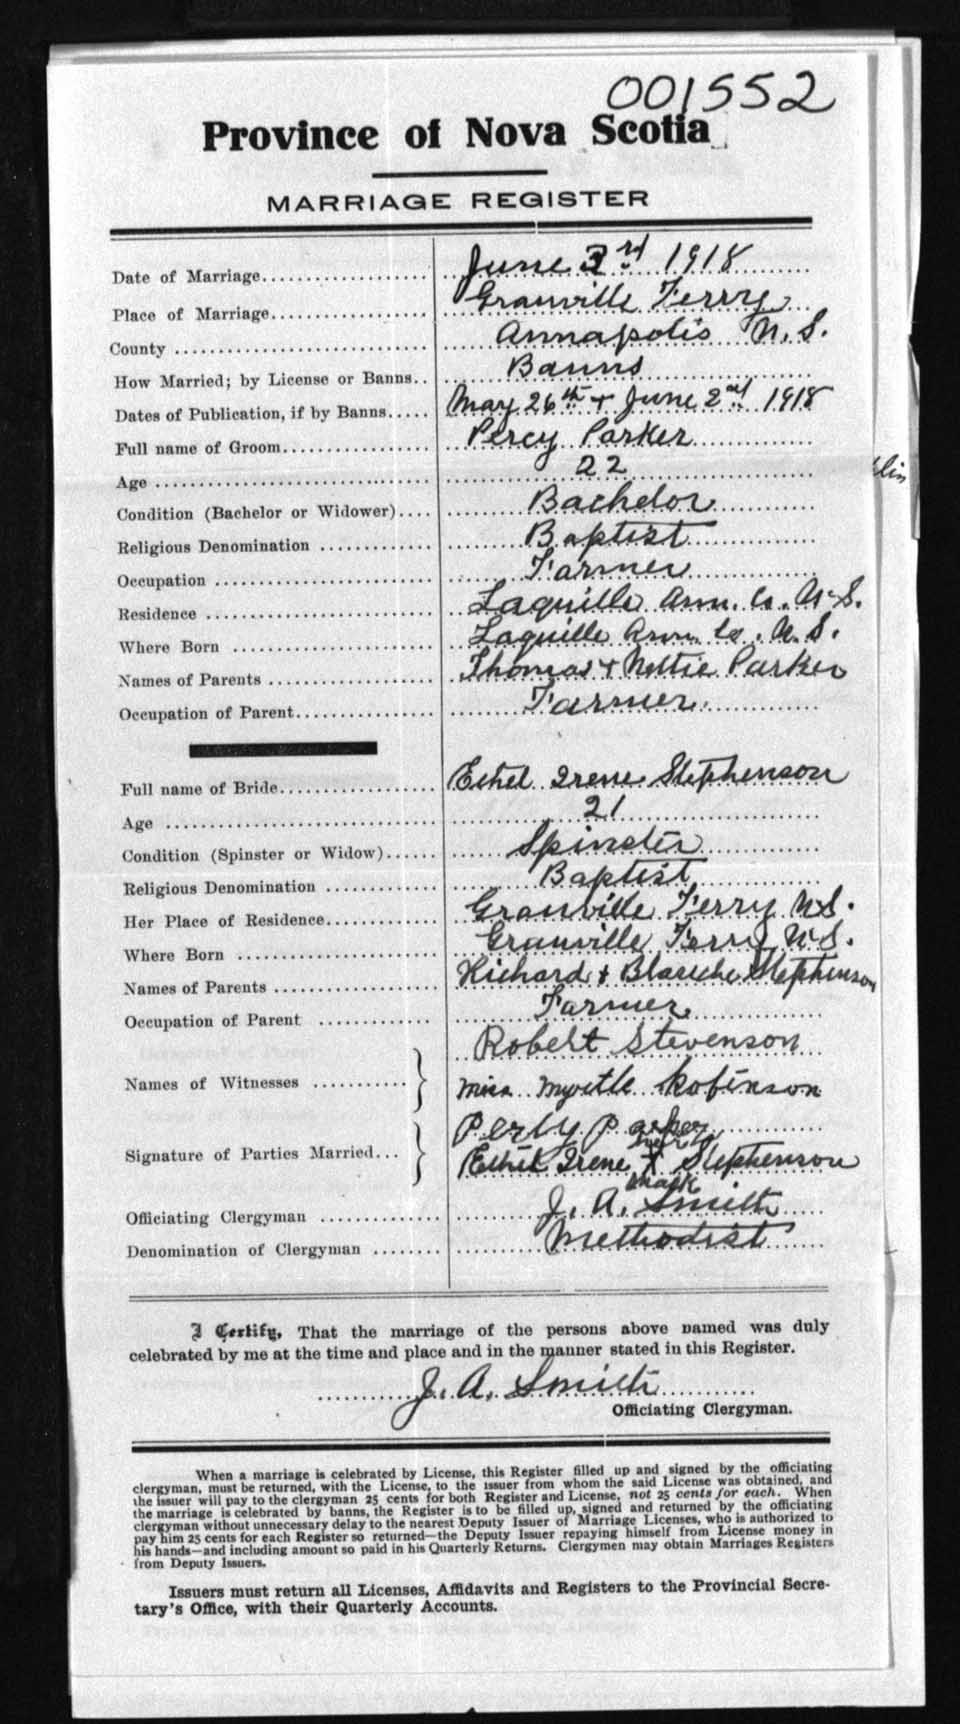 001552
Province of Nova Scotia
MARRIAGE REGISTER
Date of Marriage.................... June 3rd 1918
Place of Marriage................... Granville Ferry
County .............................. Annapolis N.S.
How Married; by License or Banns.. Banns
Dates of Publication, if by Banns..... May 26th + June 2nd 1918
Full name of Groom.................. Percy Parker
Age ................................. 22
Condition (Bachelor or Widower).... Bachelor
Religious Denomination .............. Baptist
Occupation .......................... Farmer
Residence ........................... Lequille Ann. Co. N.S.
Where Born ........................ Lequille Ann. Co. N.S.
Names of Parents .................... Thomas + Nettie Parker
Occupation of Parent................. Farmer
Full name of Bride................... Ethel Irene Stephenson
Age ................................. 21
Condition (Spinster or Widow)...... Spinster
Religious Denomination .............. Baptist
Her Place of Residence.............. Granville Ferry N.S.
Where Born ........................ Granville Ferry N.S.
Names of Parents .................... Richard + Blanche Stephenson
Occupation of Parent ............... Farmer
Names of Witnesses ............ Robert Stevenson
Miss Myrtle Robinson
Signature of Parties Married... Percy Parker
Ethel Irene her X mark Stephenson
Officiating Clergyman ............... J. A. Smith
Denomination of Clergyman ........ Methodist
I Certify, That the marriage of the persons above named was duly
celebrated by me at the time and place and in the manner stated in this Register.
J. A. Smith
Officiating Clergyman.
When a marriage is celebrated by License, this Register filled up and signed by the officiating
clergyman, must be returned, with the License, to the issuer from whom the said License was obtained, and
the issuer will pay to the clergyman 25 cents for both Register and License, not 25 cents for each. When
the marriage is celebrated by banns, the Register is to be filled up, signed and returned by the officiating
clergyman without unnecessary delay to the nearest Deputy Issuer of Marriage Licenses, who is authorized to
pay him 25 cents for each Register so returned—the Deputy Issuer repaying himself from License money in
his hands—and including amount so paid in his Quarterly Returns. Clergymen may obtain Marriages Registers
from Deputy Issuers.
Issuers must return all Licenses, Affidavits and Registers to the Provincial Secre-
tary's Office, with their Quarterly Accounts.